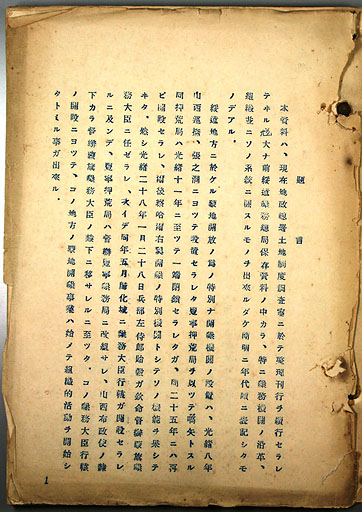 題言
本資料ハ、現在地政總署土地制度調査室ニ於テ整理刊行ヲ續行セラレ
テヰル尨大ナ前綏遠墾務總局保存資料ノ中カラ、特ニ墾務機關ノ沿革、
組織並ニソノ系統ニ關スルモノヲ出來ルダケ簡明ニ年代順ニ表記シタモ
ノデアル。
綏遠地方ニ於ケル墾地開放ノ爲ノ特別ナ開墾機關ノ設置ハ、光緒八年
山西巡撫、張之洞ニヨツテ設置セラレタ豐寧押荒局ヲ以ツテ嚆矢トスル
同押荒局ハ光緒十一年ニ至ツテ一端閉鎖セラレタガ、同二十五年ニハ再
ビ開設セラレ、爾後察哈爾右翼開墾ノ特別機關トシテソノ機能ヲ果シテ
ヰタ。越シ光緒二十八年一月二十八日兵部左侍郎貽穀ガ欽命督辦蒙旗墾
務大臣ニ任ゼラレ、次イデ同年五月歸化城ニ墾務大臣行轅ガ開設セラレ
ルニ及ンデ、豐寧押荒局ハ督辦豐寧墾務局ニ改組サレ、山西布政使ノ隷
下カラ督辦蒙旗墾務大臣ノ隷下ニ移サレルニ至ツタ、コノ墾務大臣行轅
ノ開設ニヨツテ、コノ地方ノ墾地開墾事業ハ始メテ組織的活動ヲ開始シ
タトミル事ガ出來ル。
1